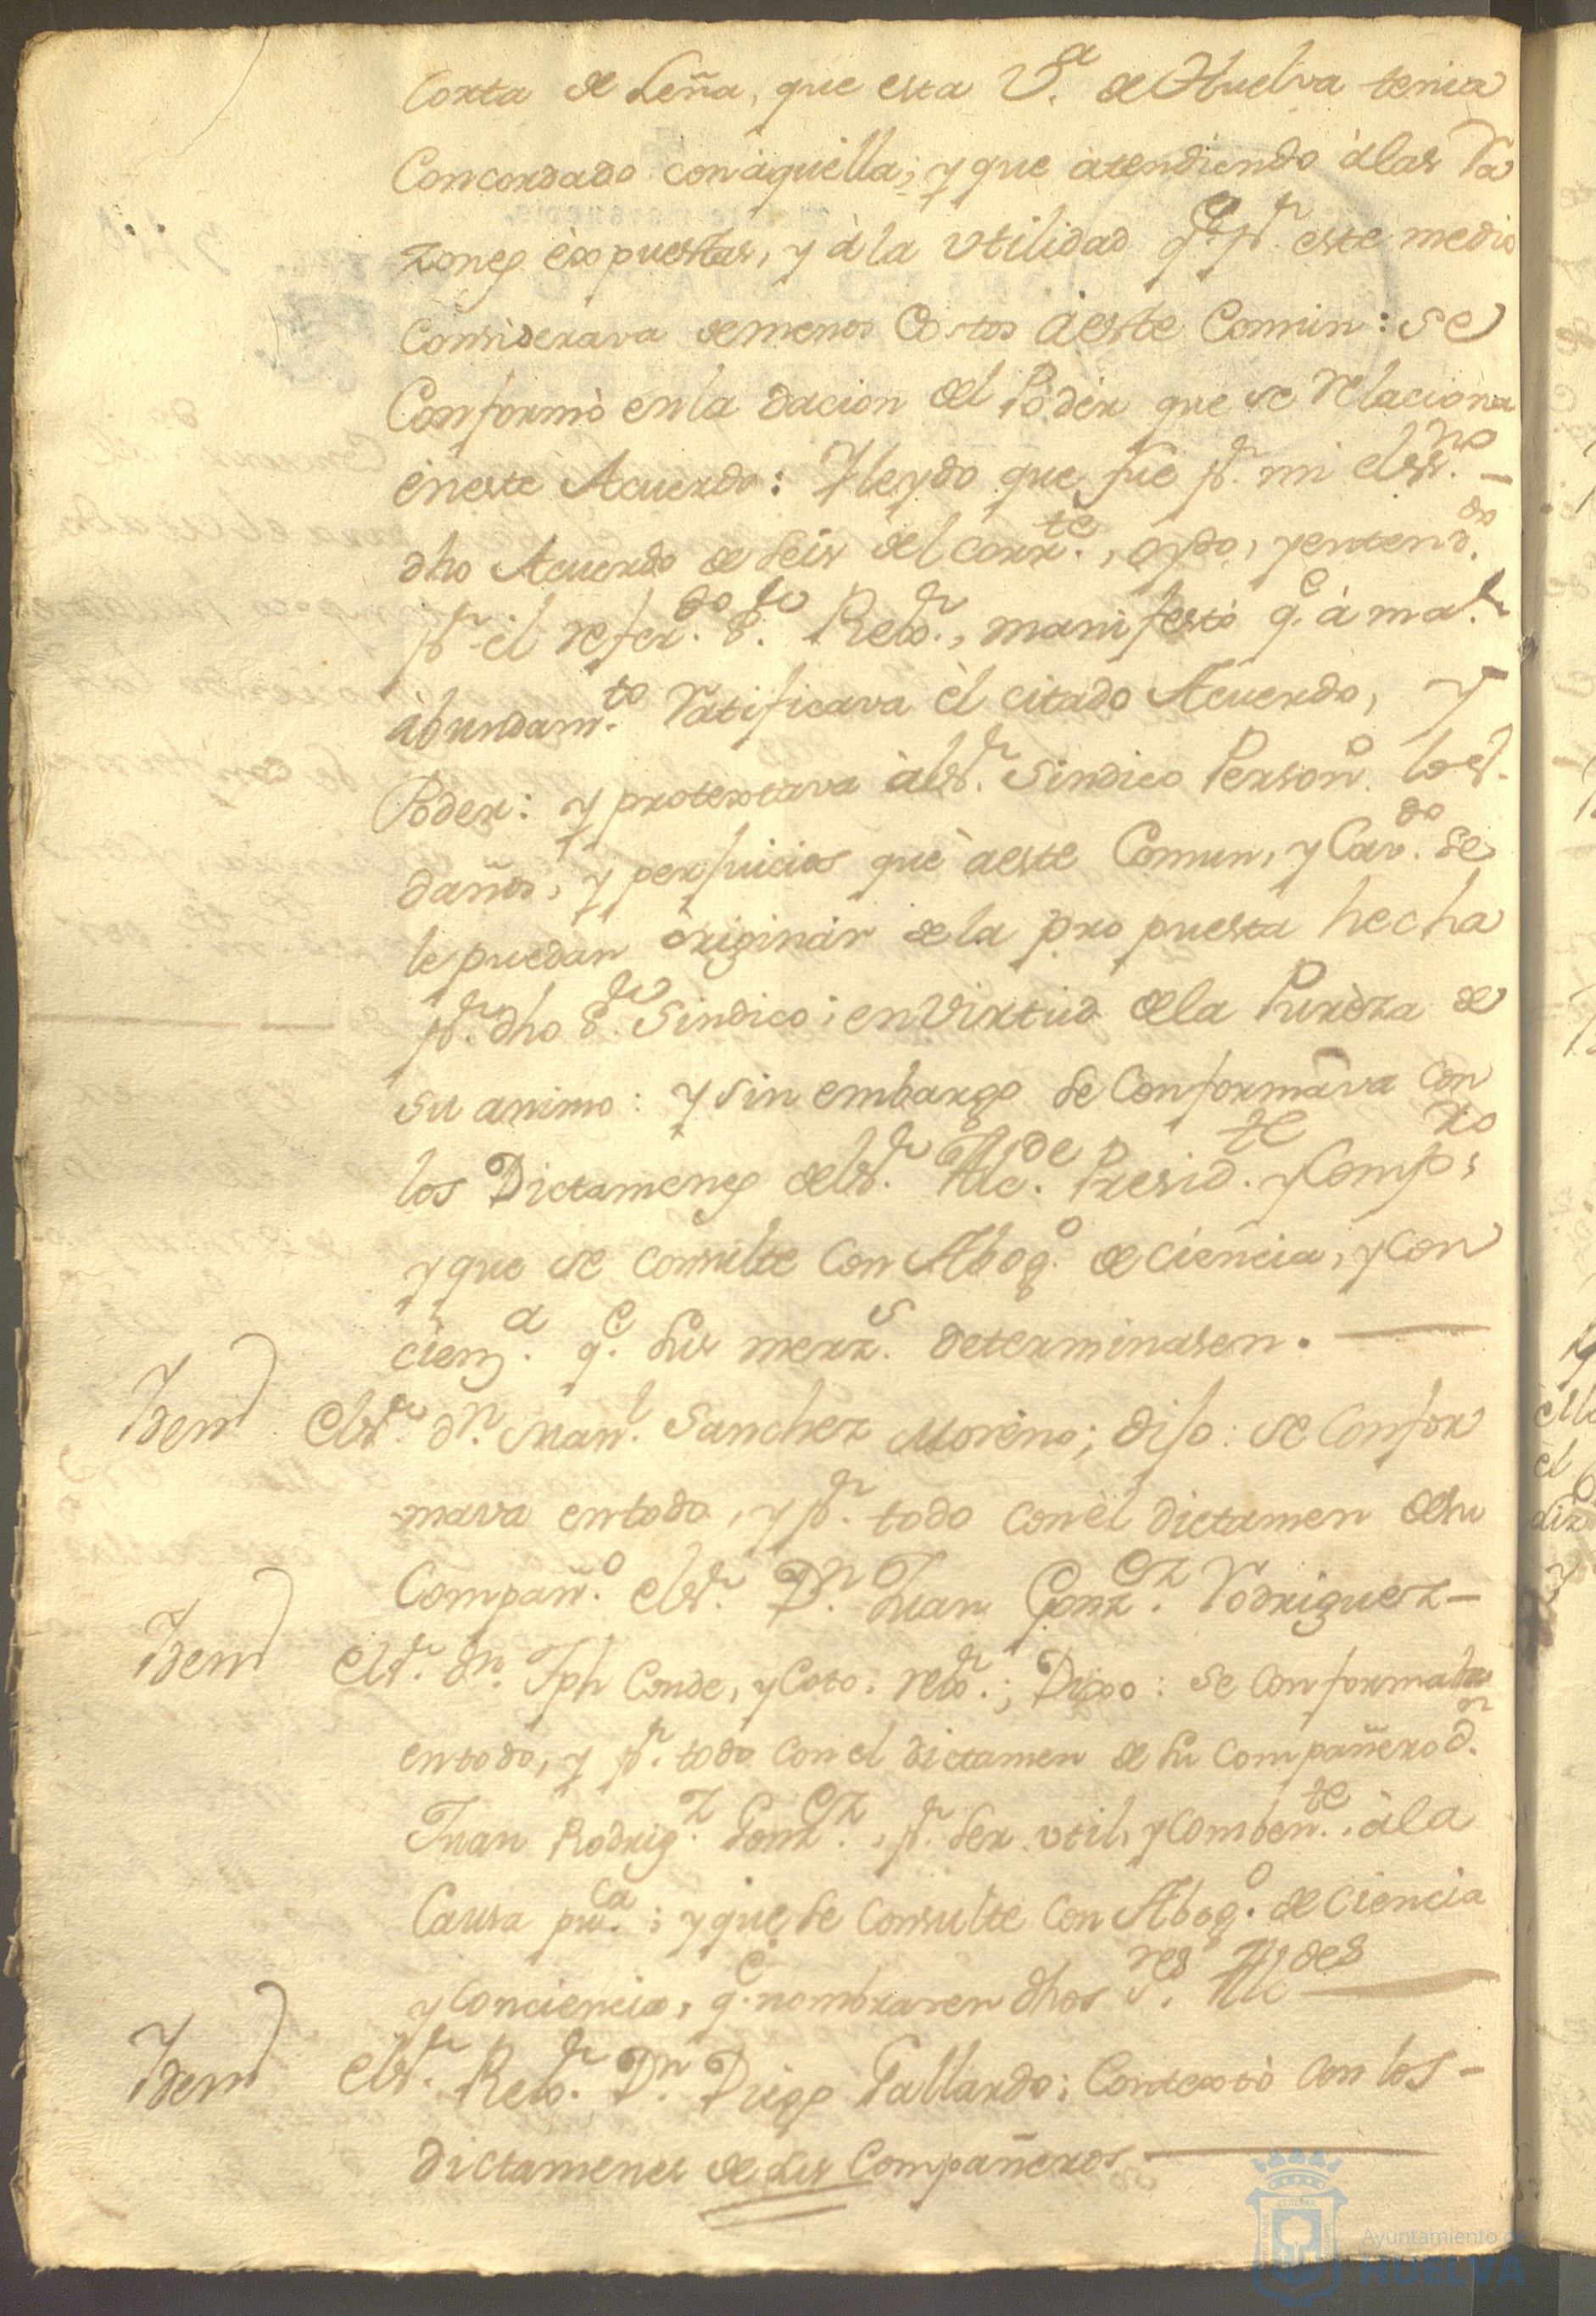 Corta de Leña, que esta V.ª de Huelva tenia
Concordado con àquèlla; y que àtendiendo àlas Ra
zones èxpuestas, y àla vtilidad q.e p.r este medio
Considerava demenos Costos àeste Comun: se
Conformò enla dacion del Podèr que se relaciona
èneste Acuerdo: Yleydo que fue p.r mi el ss.no –
dho Acuerdo de seis del corr.te, oydo, yentend.do
p.r èl refer.do S.r Rex.r, manifestò q.e à ma.r
àbundam.to Ratificava èl citado Acuerdo, Y
Poder: y protextava àls.r Sindico Person.o los
daños, y perjuicios que àeste Comun, y Cav.do se
le puedan òriginàr dela propuesta hecha
p.r dho S.r Sindico; enVirtud dela Purèza de
su animo: y sin embargo se Conformava con
los Dictamenes dels.r Alc.de Presid.te yComp.ro;
y que se consulte Con Abog.o de Ciencia, y con
cienz.a q.e sus merz.s determinasen. —
Idem Els.r d.n Man.l Sanchez Morèno; dijo: se Confor
mava entodo, y p.r todo conèl dictamen desu
Compañ.o els.r D.n Juan Gonz.ez Rodriguez –
Idem Els.r d.n Jph Conde, yCoto. rex.r; Dixo: se Conformaba
entodo, y p.r todo con el dictamen de su Compañero d.n
Juan Rodrig.z Gonz.ez, p.r ser vtil, yComben.te àla
Causa pu.ca; y que se Consulte Con Abog.o de Ciencia
yConciencia, q.e nombraren dhos S.res Alc.des —
Idem Els.r Rex.r D.n Diego Gallardo; Contextò con los –
dictamenes de sus Compañeros —
Ayuntamiento de
HUELVA